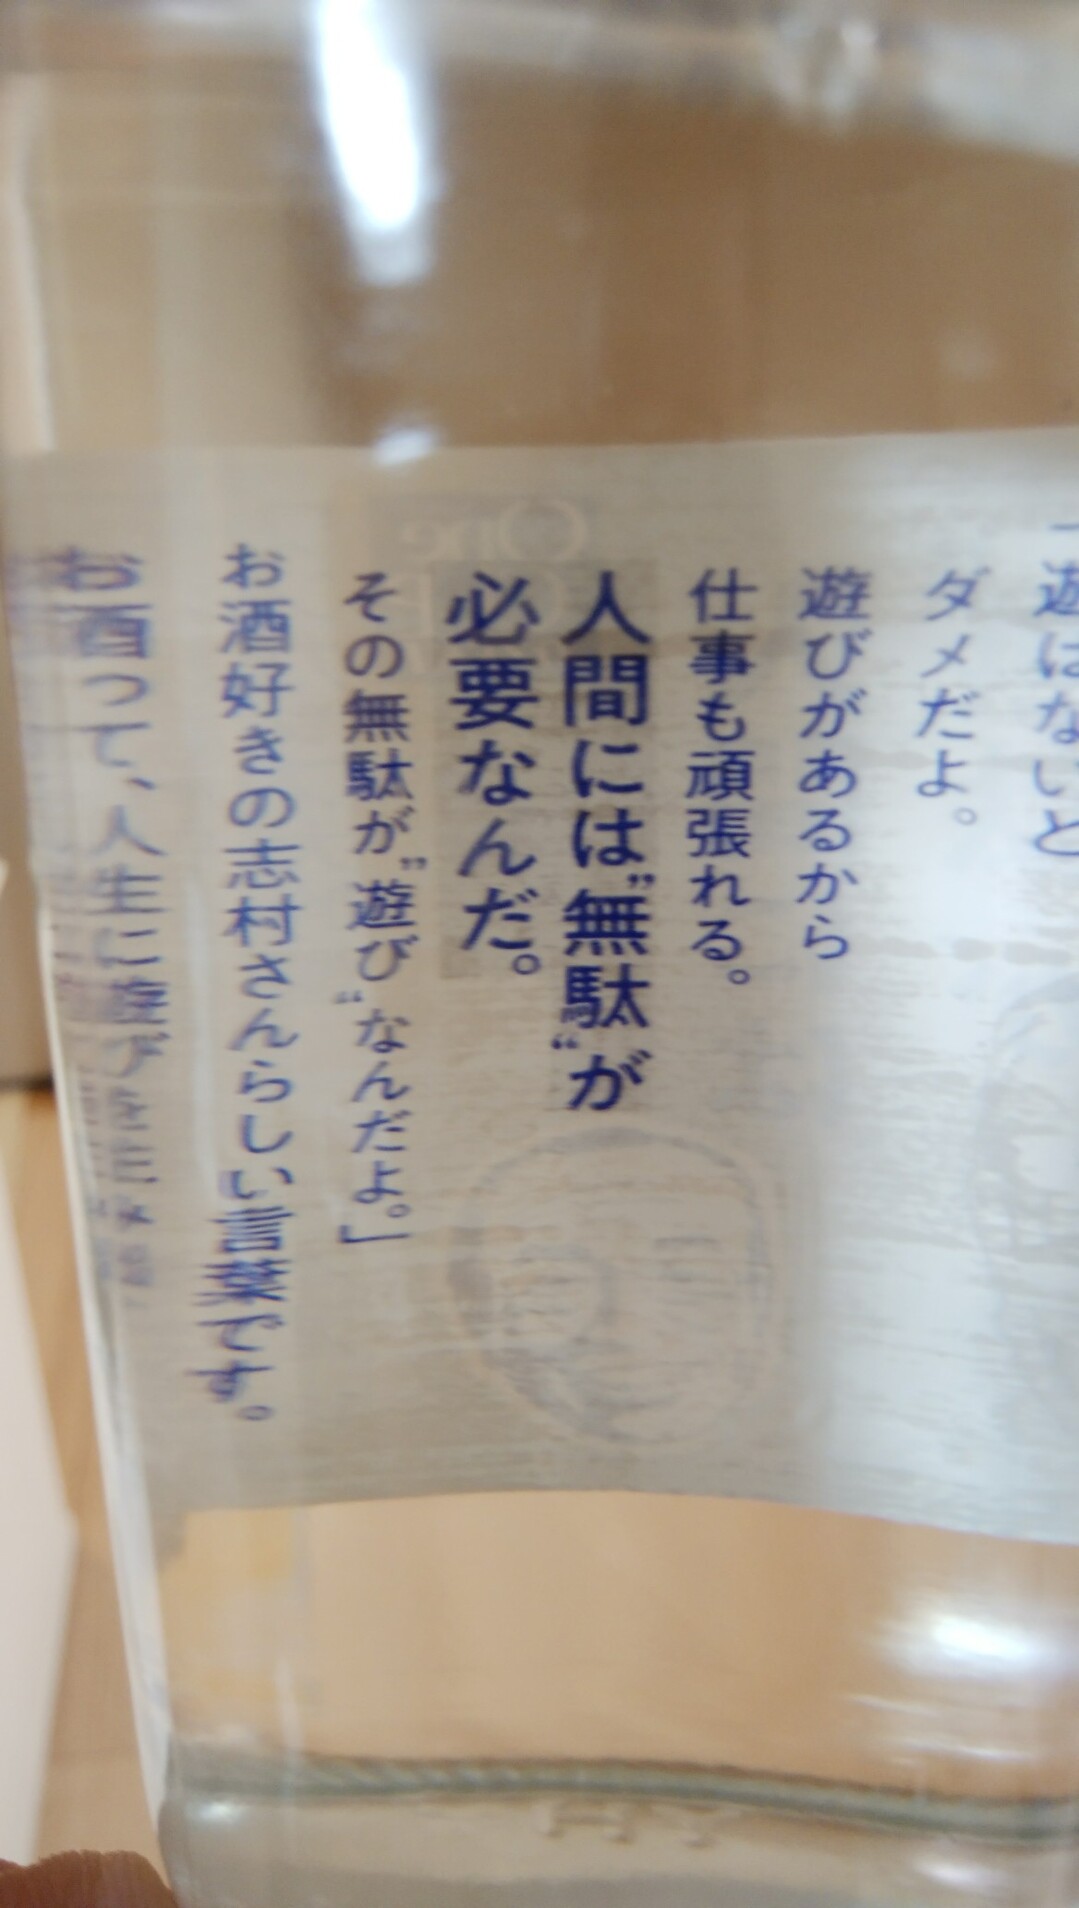 「遊ばないと
ダメだよ。
遊びがあるから
仕事も頑張れる。
人間には”無駄“が
必要なんだ。
その無駄が”遊び“なんだよ。」
お酒好きの志村さんらしい言葉です。
お酒って、人生に遊びを
One